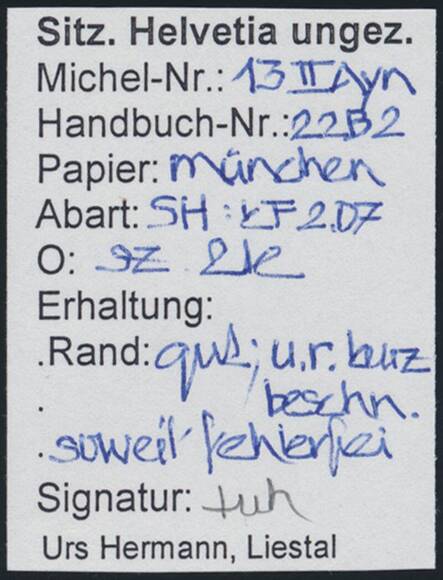 Sitz. Helvetia ungez.
Michel-Nr.: 13 II Ayn
Handbuch-Nr.: 22B2
Papier: münchen
Abart: SH: 2.07
O:
Erhaltung:
.Rand: gut; u.r. kurz
. beschn.
. soweit fehlerfrei
Signatur: tuh
Urs Hermann, Liestal